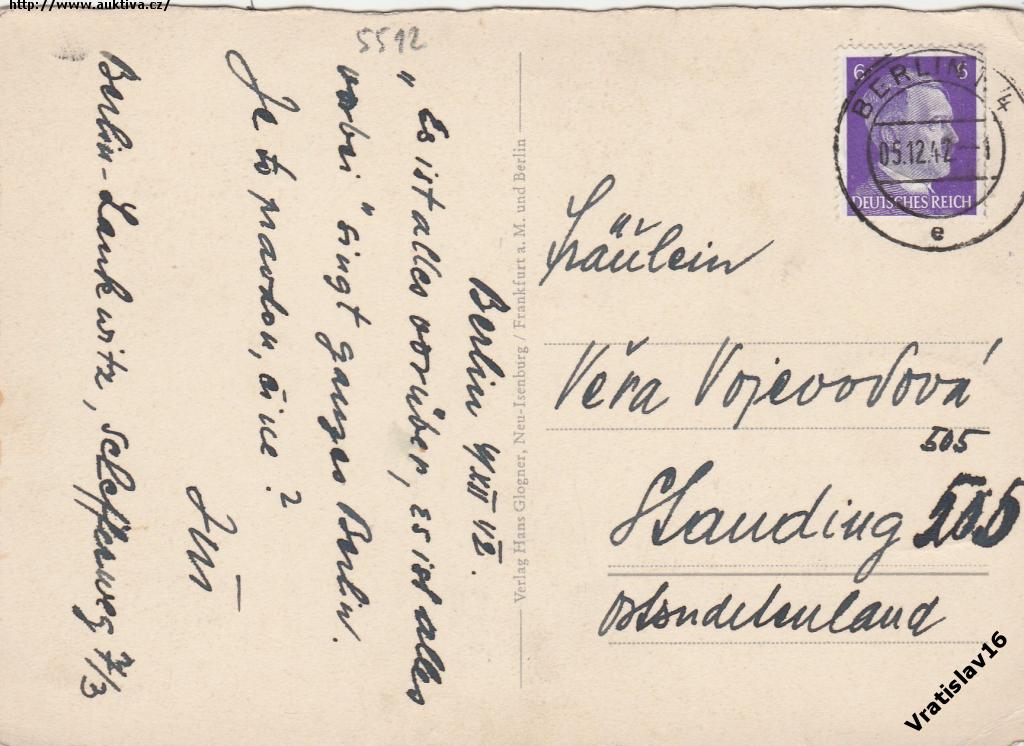 http://www.auktiva.cz/
5592
Berlin 4/XII 42.
„Es ist alles vorüber, es ist alles
vorbei" singt ganzes Berlin.
Je to pravdou, či ne?
Berlin-Lankwitz, 7/3
Verlag Hans Glogner, Neu-Isenburg / Frankfurt a. M. und Berlin
6 6
DEUTSCHES REICH
BERLIN 4
05.12.42
e
Fräulein
Věra Vojevodová
505
Stauding 505
Ostsudetenland
Vratislav16